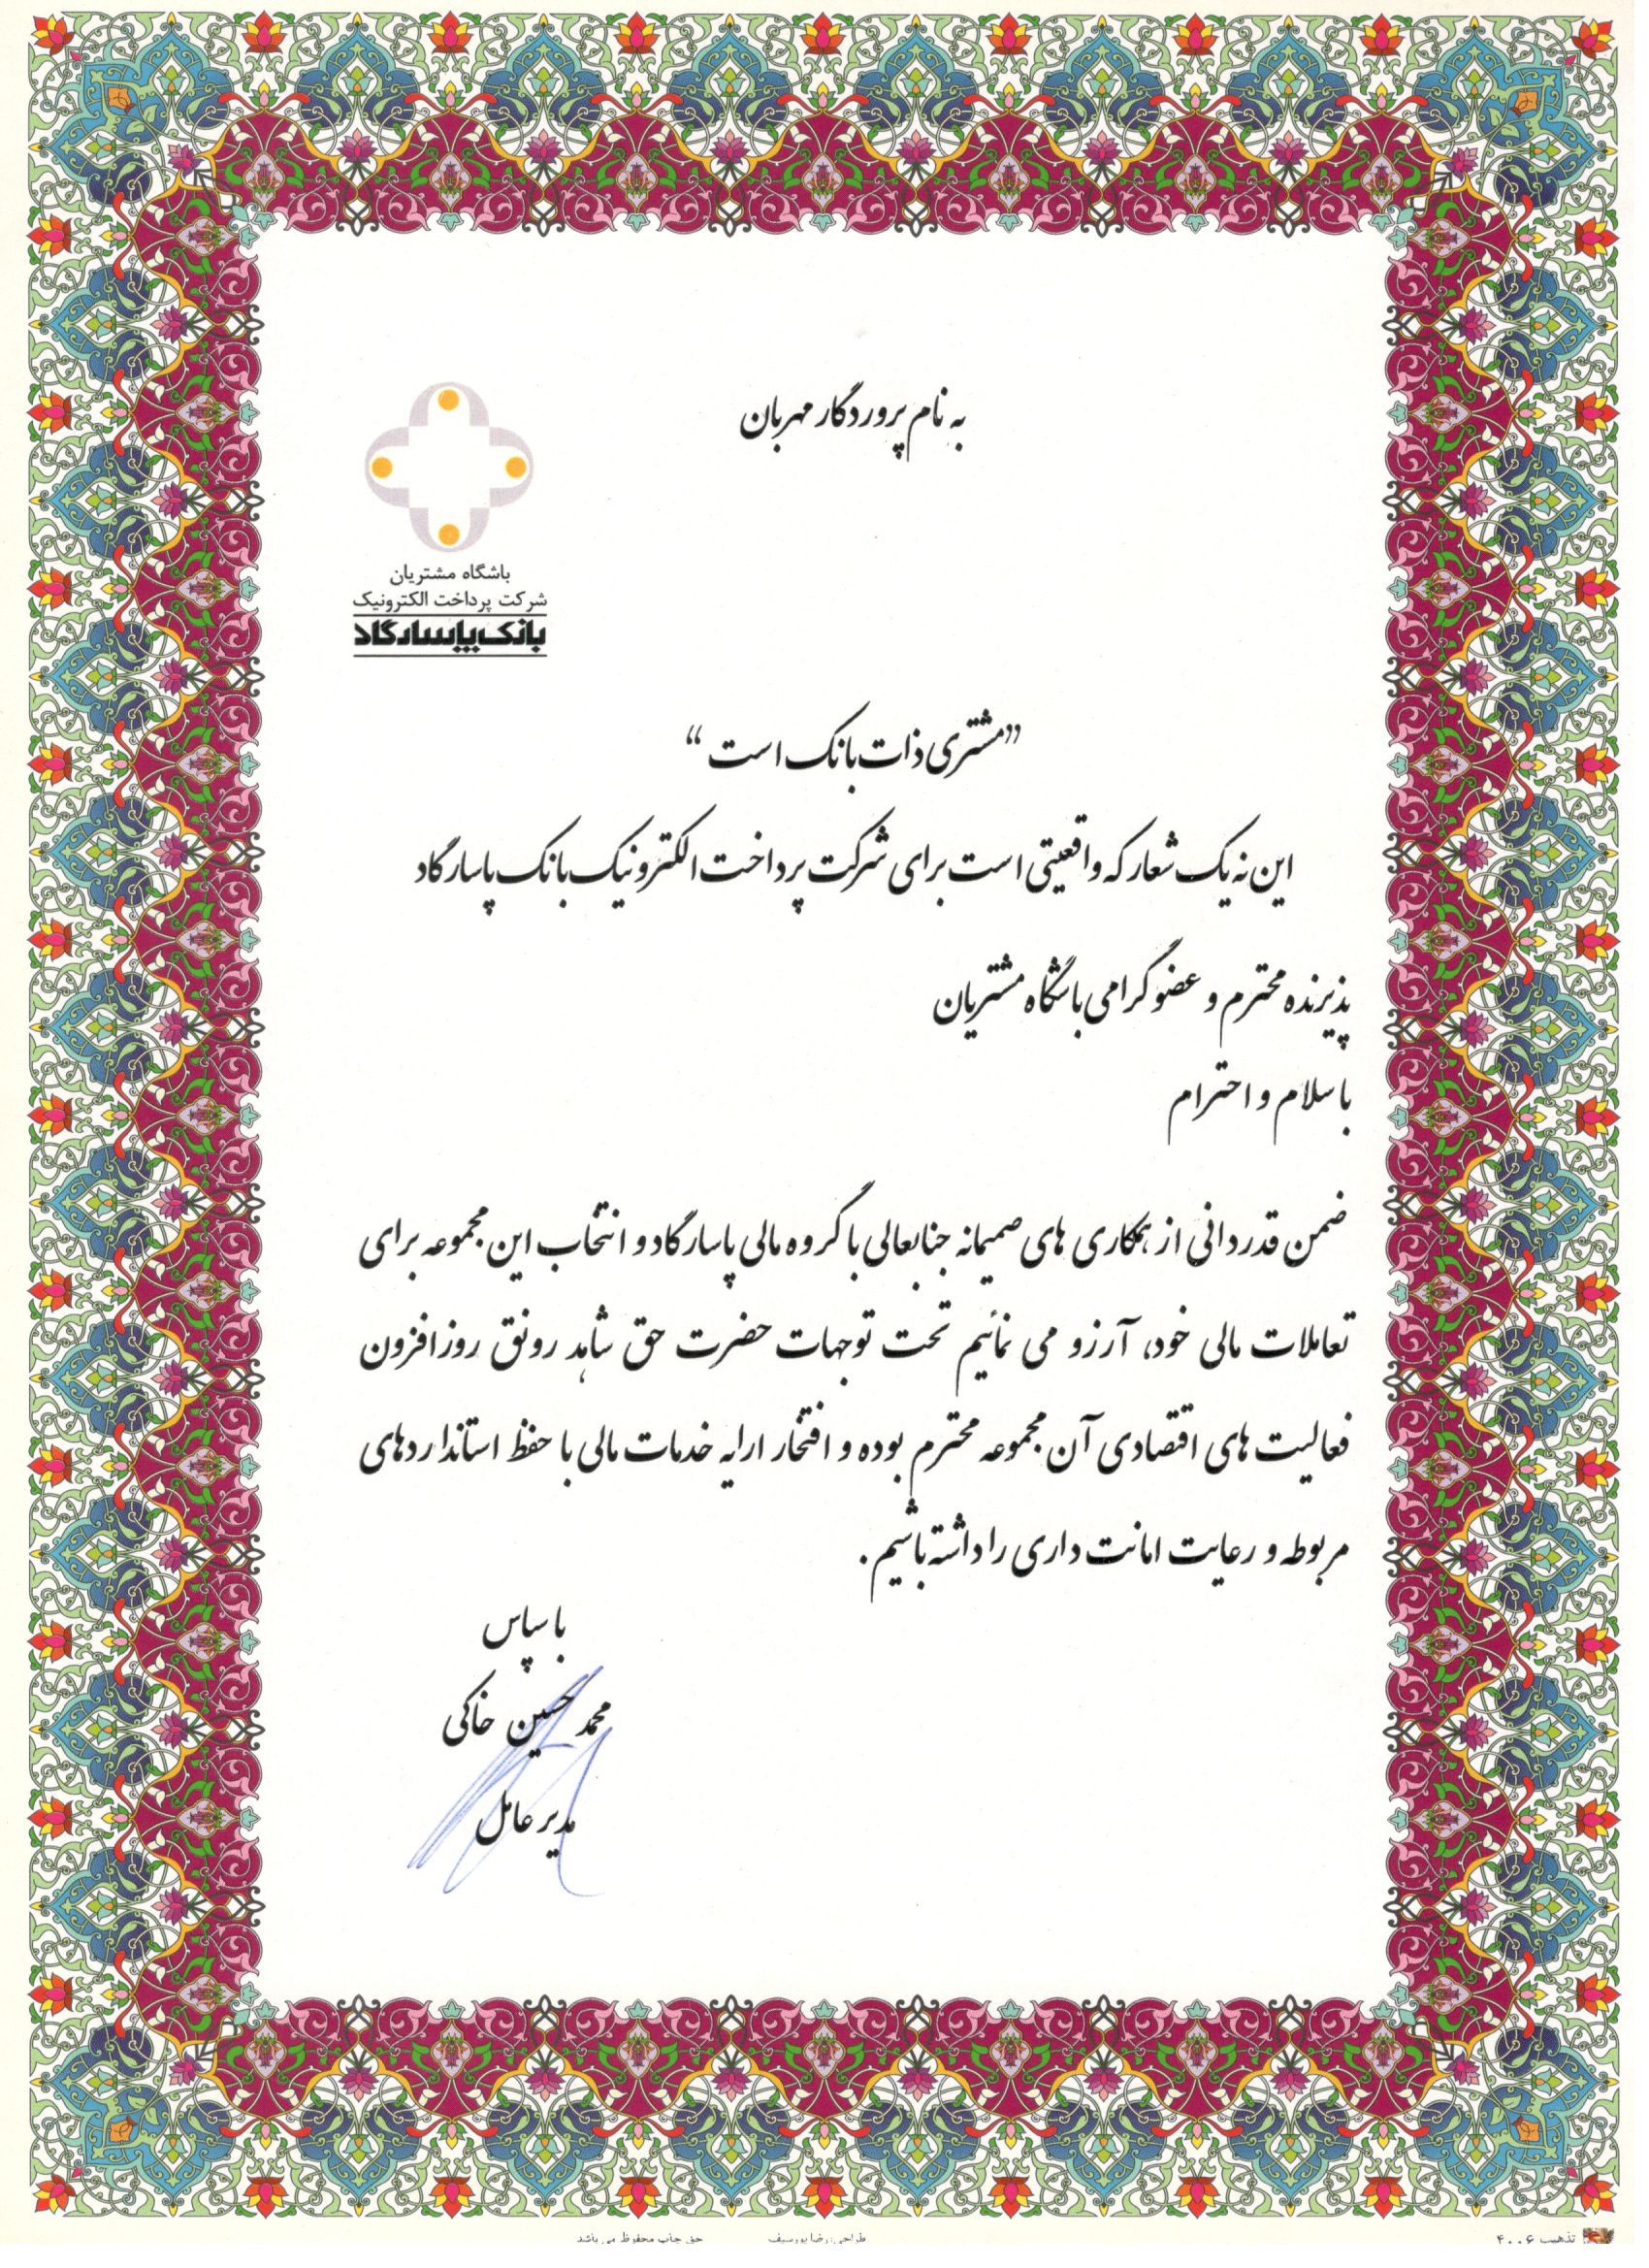 به نام پروردگار مهربان
باشگاه مشتریان
شرکت پرداخت الکترونیک
بانک پاسارگاد
”مشتری ذات بانک است“
این نه یک شعار که واقعیتی است برای شرکت پرداخت الکترونیک بانک پاسارگاد
پذیرنده محترم و عضو گرامی باشگاه مشتریان
با سلام و احترام
ضمن قدردانی از همکاری های صمیمانه جنابعالی با گروه مالی پاسارگاد و انتخاب این مجموعه برای
تعاملات مالی خود، آرزو می نمائیم تحت توجهات حضرت حق شاهد رونق روزافزون
فعالیت های اقتصادی آن مجموعه محترم بوده و افتخار ارایه خدمات مالی با حفظ استانداردهای
مربوطه و رعایت امانت داری را داشته باشیم.
با سپاس
محمد حسین خاکی
مدیر عامل
تذهیب ۴۰۰۶ طراحی: رضا پورسیف حق چاپ محفوظ می باشد